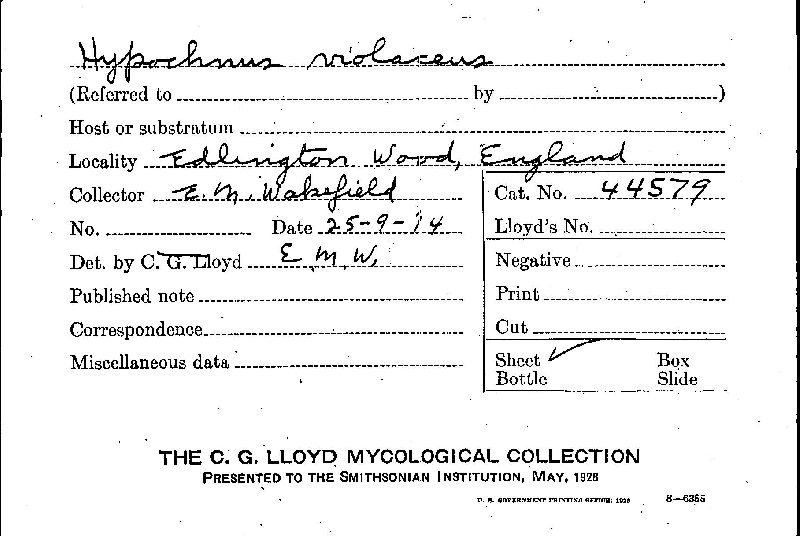 Hypochnus violaceus
(Referred to by )
Host or substratum
Locality Edlington Wood, England
Collector E. M. Wakefield
Cat. No. 44579
No. Date 25-9-14
Lloyd's No.
Det. by C. G. Lloyd E M W,
Negative
Published note
Print
Correspondence
Cut
Miscellaneous data
Sheet ✓ Box
Bottle Slide
THE C. G. LLOYD MYCOLOGICAL COLLECTION
PRESENTED TO THE SMITHSONIAN INSTITUTION, MAY, 1928
U. S. GOVERNMENT PRINTING OFFICE: 1928 8—6355